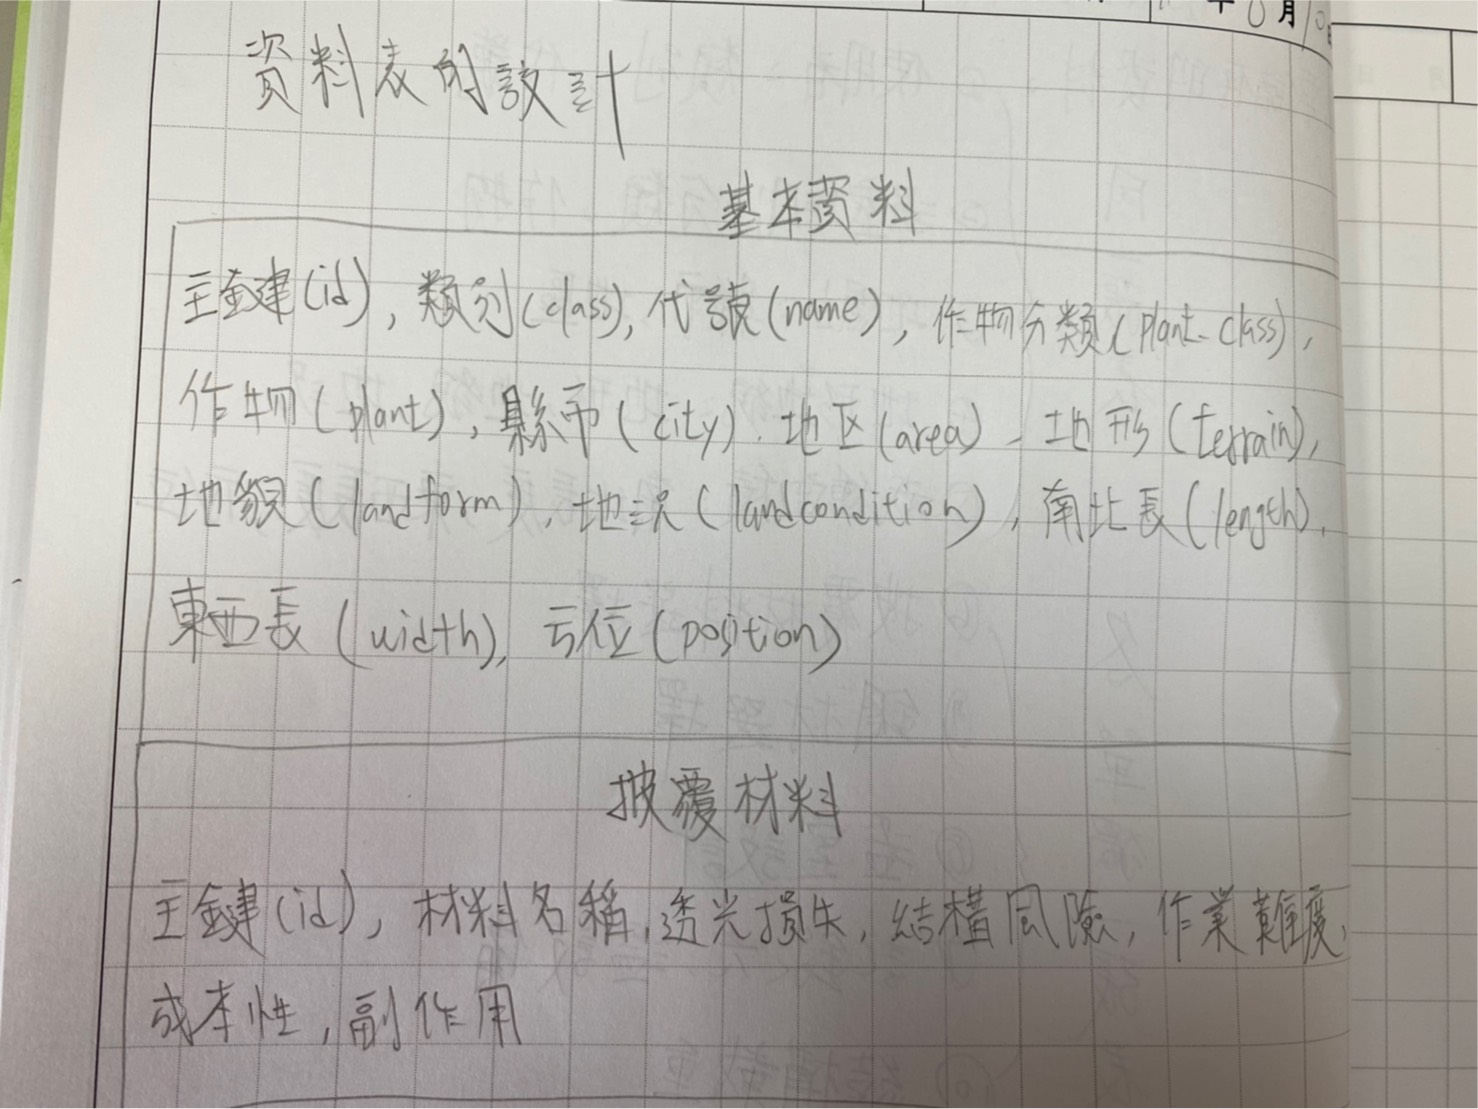 年 8月10日
資料表的設計
基本資料
主鍵(id), 類別(class), 代號(name), 作物分類(plant-class),
作物(plant), 縣市(city), 地区(area), 地形(terrain),
地貌(landform), 地況(landcondition), 南北長(length),
東西長(width), 方位(position)
披覆材料
主鍵(id), 材料名稱, 透光損失, 結構風險, 作業難度,
成本性, 副作用